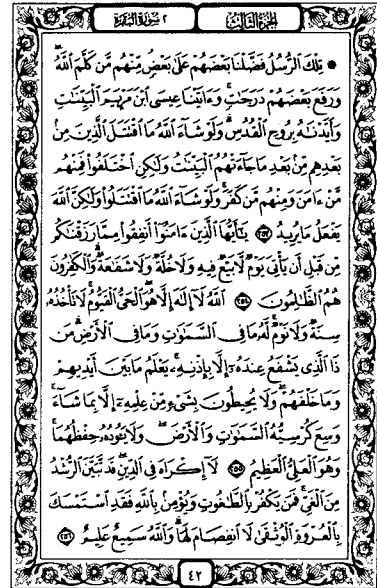 الجزء الثالث ٢ سورة البقرة
۞ تِلْكَ ٱلرُّسُلُ فَضَّلْنَا بَعْضَهُمْ عَلَىٰ بَعْضٍ مِّنْهُم مَّن كَلَّمَ ٱللَّهُ
وَرَفَعَ بَعْضَهُمْ دَرَجَٰتٍ وَءَاتَيْنَا عِيسَى ٱبْنَ مَرْيَمَ ٱلْبَيِّنَٰتِ
وَأَيَّدْنَٰهُ بِرُوحِ ٱلْقُدُسِ وَلَوْ شَآءَ ٱللَّهُ مَا ٱقْتَتَلَ ٱلَّذِينَ مِنۢ
بَعْدِهِم مِّنۢ بَعْدِ مَا جَآءَتْهُمُ ٱلْبَيِّنَٰتُ وَلَٰكِنِ ٱخْتَلَفُوا۟ فَمِنْهُم
مَّنْ ءَامَنَ وَمِنْهُم مَّن كَفَرَ وَلَوْ شَآءَ ٱللَّهُ مَا ٱقْتَتَلُوا۟ وَلَٰكِنَّ ٱللَّهَ
يَفْعَلُ مَا يُرِيدُ ٢٥٣ يَٰٓأَيُّهَا ٱلَّذِينَ ءَامَنُوٓا۟ أَنفِقُوا۟ مِمَّا رَزَقْنَٰكُم
مِّن قَبْلِ أَن يَأْتِىَ يَوْمٌ لَّا بَيْعٌ فِيهِ وَلَا خُلَّةٌ وَلَا شَفَٰعَةٌ وَٱلْكَٰفِرُونَ
هُمُ ٱلظَّٰلِمُونَ ٢٥٤ ٱللَّهُ لَآ إِلَٰهَ إِلَّا هُوَ ٱلْحَىُّ ٱلْقَيُّومُ لَا تَأْخُذُهُۥ
سِنَةٌ وَلَا نَوْمٌ لَّهُۥ مَا فِى ٱلسَّمَٰوَٰتِ وَمَا فِى ٱلْأَرْضِ مَن
ذَا ٱلَّذِى يَشْفَعُ عِندَهُۥٓ إِلَّا بِإِذْنِهِۦ يَعْلَمُ مَا بَيْنَ أَيْدِيهِمْ
وَمَا خَلْفَهُمْ وَلَا يُحِيطُونَ بِشَىْءٍ مِّنْ عِلْمِهِۦٓ إِلَّا بِمَا شَآءَ
وَسِعَ كُرْسِيُّهُ ٱلسَّمَٰوَٰتِ وَٱلْأَرْضَ وَلَا يَـُٔودُهُۥ حِفْظُهُمَا
وَهُوَ ٱلْعَلِىُّ ٱلْعَظِيمُ ٢٥٥ لَآ إِكْرَاهَ فِى ٱلدِّينِ قَد تَّبَيَّنَ ٱلرُّشْدُ
مِنَ ٱلْغَىِّ فَمَن يَكْفُرْ بِٱلطَّٰغُوتِ وَيُؤْمِنۢ بِٱللَّهِ فَقَدِ ٱسْتَمْسَكَ
بِٱلْعُرْوَةِ ٱلْوُثْقَىٰ لَا ٱنفِصَامَ لَهَا وَٱللَّهُ سَمِيعٌ عَلِيمٌ ٢٥٦
٤٢